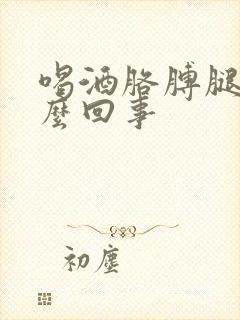 喝酒胳膊腿
麽回事
初尘